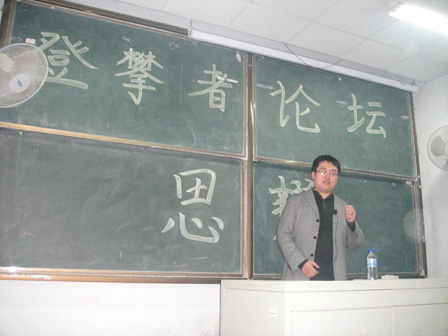 登攀者论坛
思